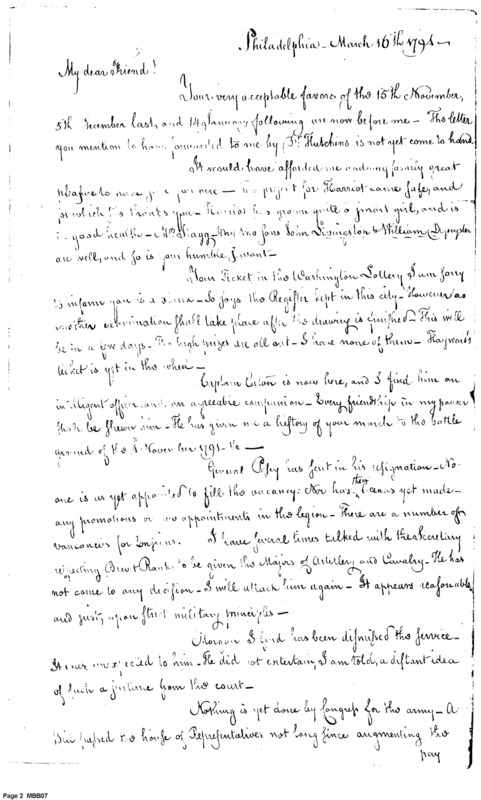 Philadelphia - March 16th 1794 -
My dear Friend!
Your very acceptable favors of the 15th November,
5th December last, and 14 January following are now before me - The letter
you mention to have forwarded to me by Dr. Hutchins is not yet come to hand.
It would have afforded me and my family great
pleasure to have you here - The project for Harriot came safe, and
for which she thanks you - Harriot has grown quite a smart girl, and is
in good health - Mrs. Stagg - my two sons John Livingston & William Depeyster
are well, and so is your humble servant -
Your Ticket in the Washington Lottery I am sorry
to inform you is a - So says the Register kept in this city - However as
another examination shall take place after the drawing is finished - This will
be in a few days. The high prizes are all out - I have none of them - Hayward's
ticket is yet in the wheel -
Captain Eaton is now here, and I find him an
intelligent officer and an agreeable companion - Every friendship in my power
shall be shewn him - He has given me a history of your march to the battle
ground of the 4 November 1791 &c -
General Posey has sent in his resignation - No
one is as yet appointed to fill the vacancy: Nor has there been as yet made -
any promotions or new appointments in the legion - There are a number of
vacancies for Ensigns. I have several times talked with the Secretary
respecting Brevt Rank to be given the Majors of Artillery and Cavalry - He has
not come to any decision - I will attack him again - It appears reasonable
and just, upon strict military principles -
has been dismissed the service -
It was unexpected to him - He did not entertain, I am told, a distant idea
of such a sentence from the court -
Nothing is yet done by Congress for the army - A
Bill passed the house of Representatives not long since augmenting the
pay
Page 2 MBB07